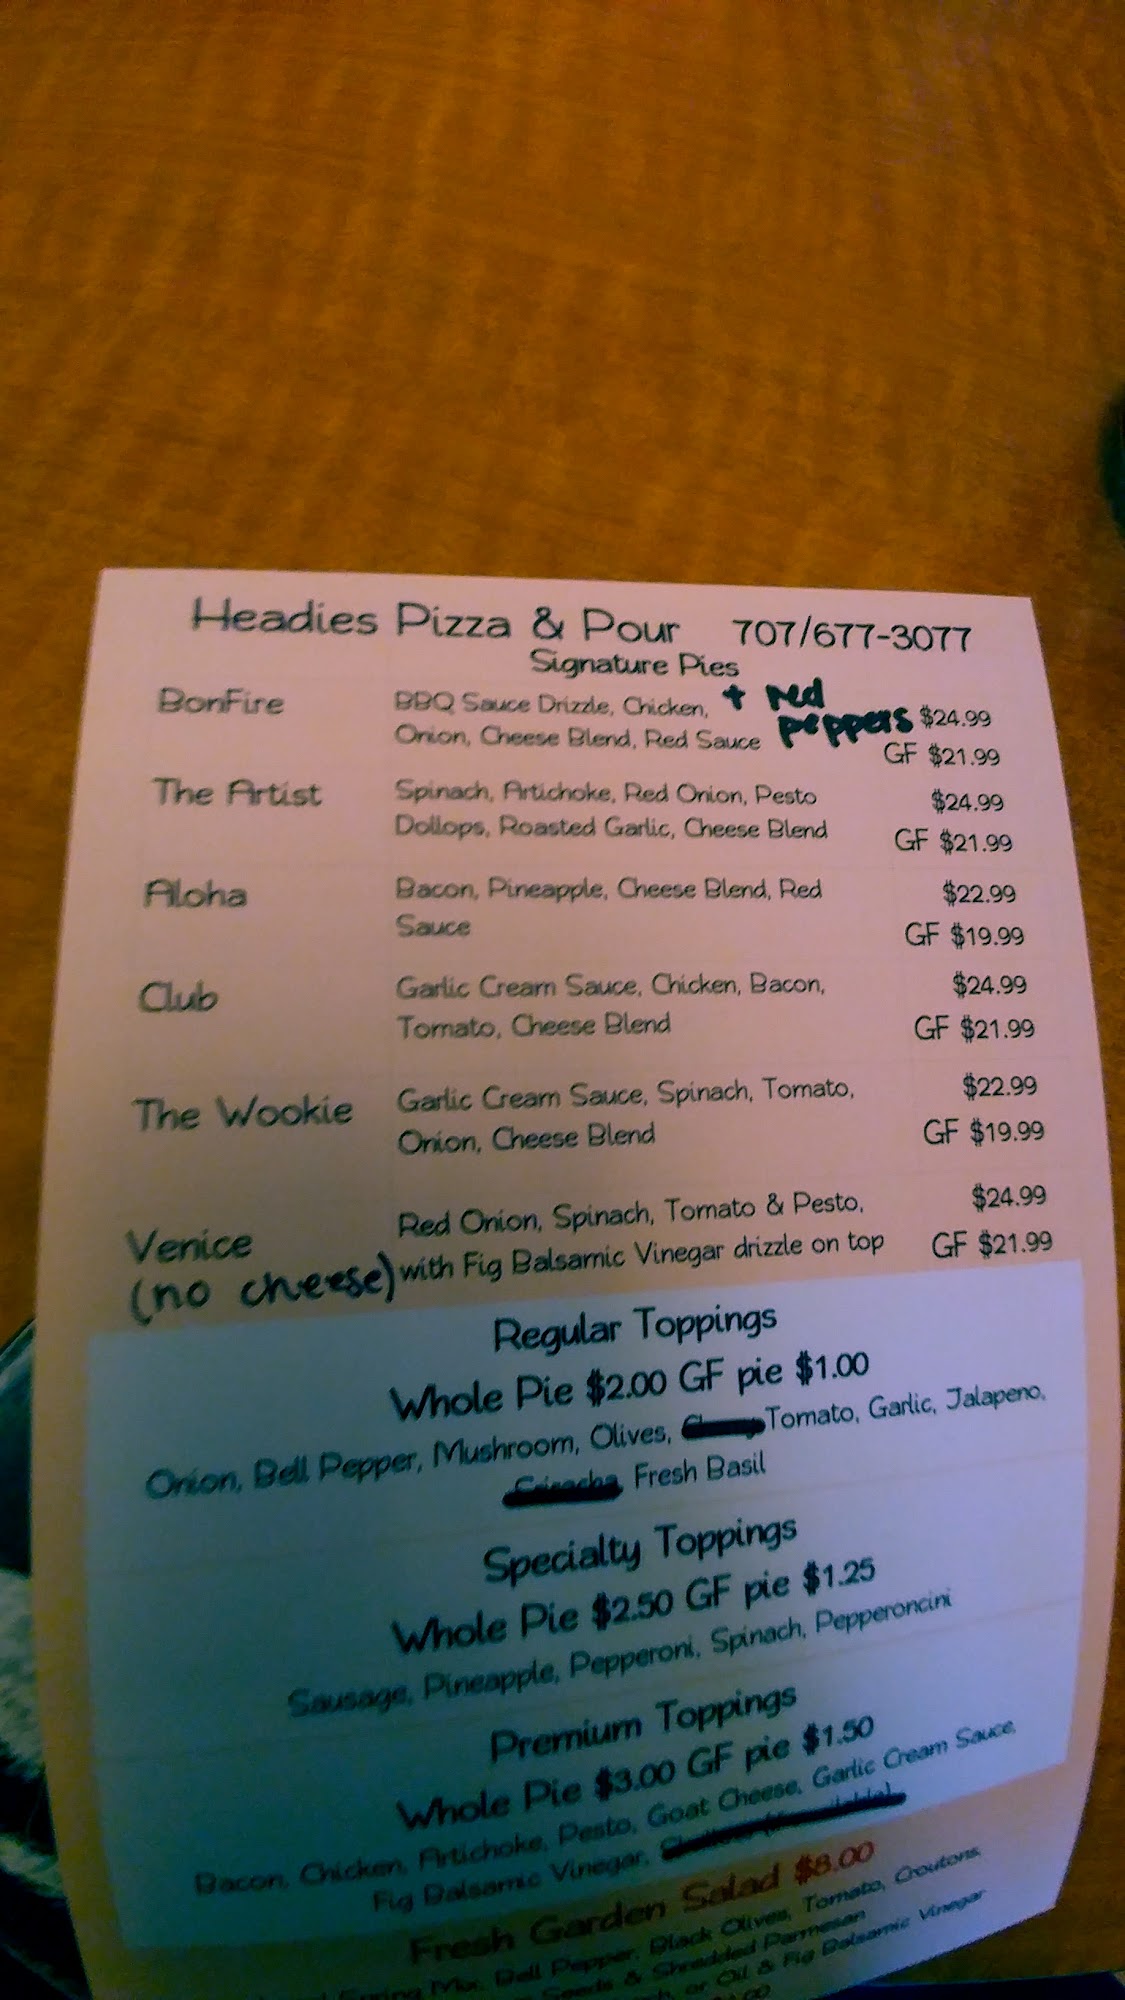 Headies Pizza & Pour 707/677-3077
Signature Pies
BonFire BBQ Sauce Drizzle, Chicken, + red
Onion, Cheese Blend, Red Sauce peppers $24.99
GF $21.99
The Artist Spinach, Artichoke, Red Onion, Pesto $24.99
Dollops, Roasted Garlic, Cheese Blend GF $21.99
Aloha Bacon, Pineapple, Cheese Blend, Red $22.99
Sauce GF $19.99
Club Garlic Cream Sauce, Chicken, Bacon, $24.99
Tomato, Cheese Blend GF $21.99
The Wookie Garlic Cream Sauce, Spinach, Tomato, $22.99
Onion, Cheese Blend GF $19.99
Venice Red Onion, Spinach, Tomato & Pesto, $24.99
(no cheese) with Fig Balsamic Vinegar drizzle on top GF $21.99
Regular Toppings
Whole Pie $2.00 GF pie $1.00
Onion, Bell Pepper, Mushroom, Olives, Tomato, Garlic, Jalapeno,
Sriracha, Fresh Basil
Specialty Toppings
Whole Pie $2.50 GF pie $1.25
Sausage, Pineapple, Pepperoni, Spinach, Pepperoncini
Premium Toppings
Whole Pie $3.00 GF pie $1.50
Bacon, Chicken, Artichoke, Pesto, Goat Cheese, Garlic Cream Sauce,
Fig Balsamic Vinegar,
Fresh Garden Salad $8.00
Spring Mix, Bell Pepper, Black Olives, Tomato, Croutons,
Seeds & Shredded Parmesan
or Oil & Fig Balsamic Vinegar